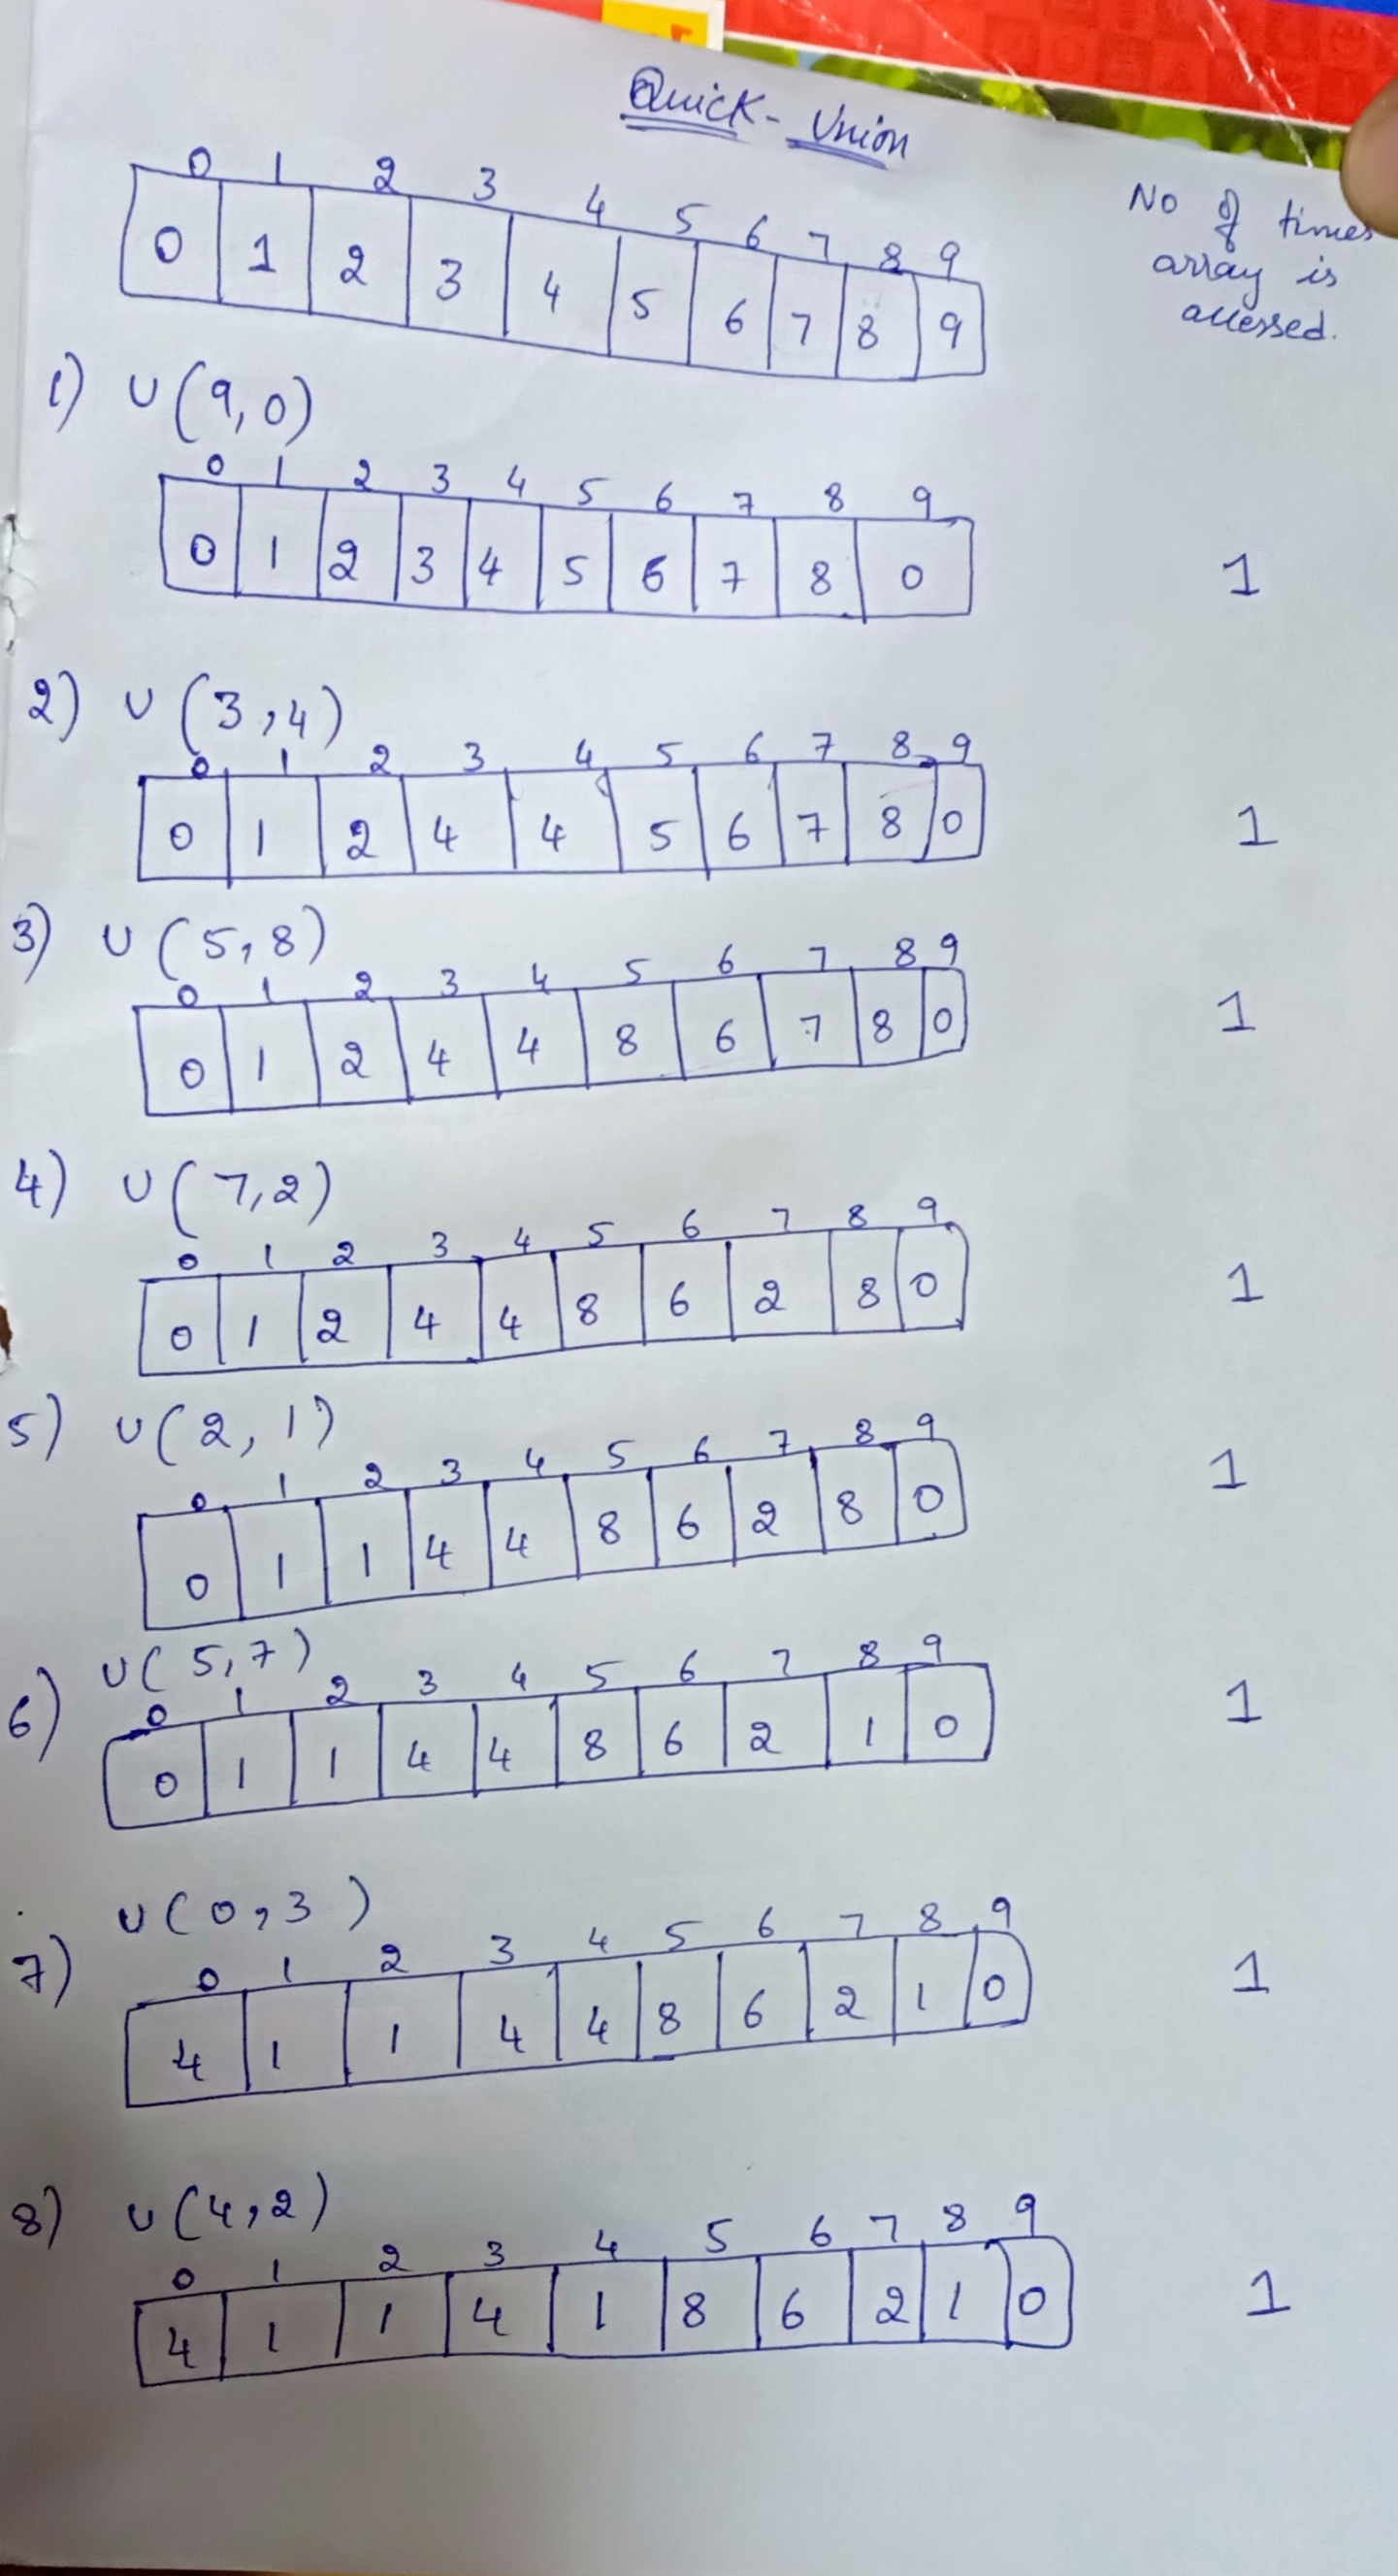 Quick-Union
No of times
array is
accessed.
0 1 2 3 4 5 6 7 8 9
0 1 2 3 4 5 6 7 8 9
1) U(9,0)
0 1 2 3 4 5 6 7 8 9
0 1 2 3 4 5 6 7 8 0 1
2) U(3,4)
0 1 2 3 4 5 6 7 8 9
0 1 2 4 4 5 6 7 8 0 1
3) U(5,8)
0 1 2 3 4 5 6 7 8 9
0 1 2 4 4 8 6 7 8 0 1
4) U(7,2)
0 1 2 3 4 5 6 7 8 9
0 1 2 4 4 8 6 2 8 0 1
5) U(2,1)
0 1 2 3 4 5 6 7 8 9
0 1 1 4 4 8 6 2 8 0 1
6) U(5,7)
0 1 2 3 4 5 6 7 8 9
0 1 1 4 4 8 6 2 1 0 1
7) U(0,3)
0 1 2 3 4 5 6 7 8 9
4 1 1 4 4 8 6 2 1 0 1
8) U(4,2)
0 1 2 3 4 5 6 7 8 9
4 1 1 4 1 8 6 2 1 0 1